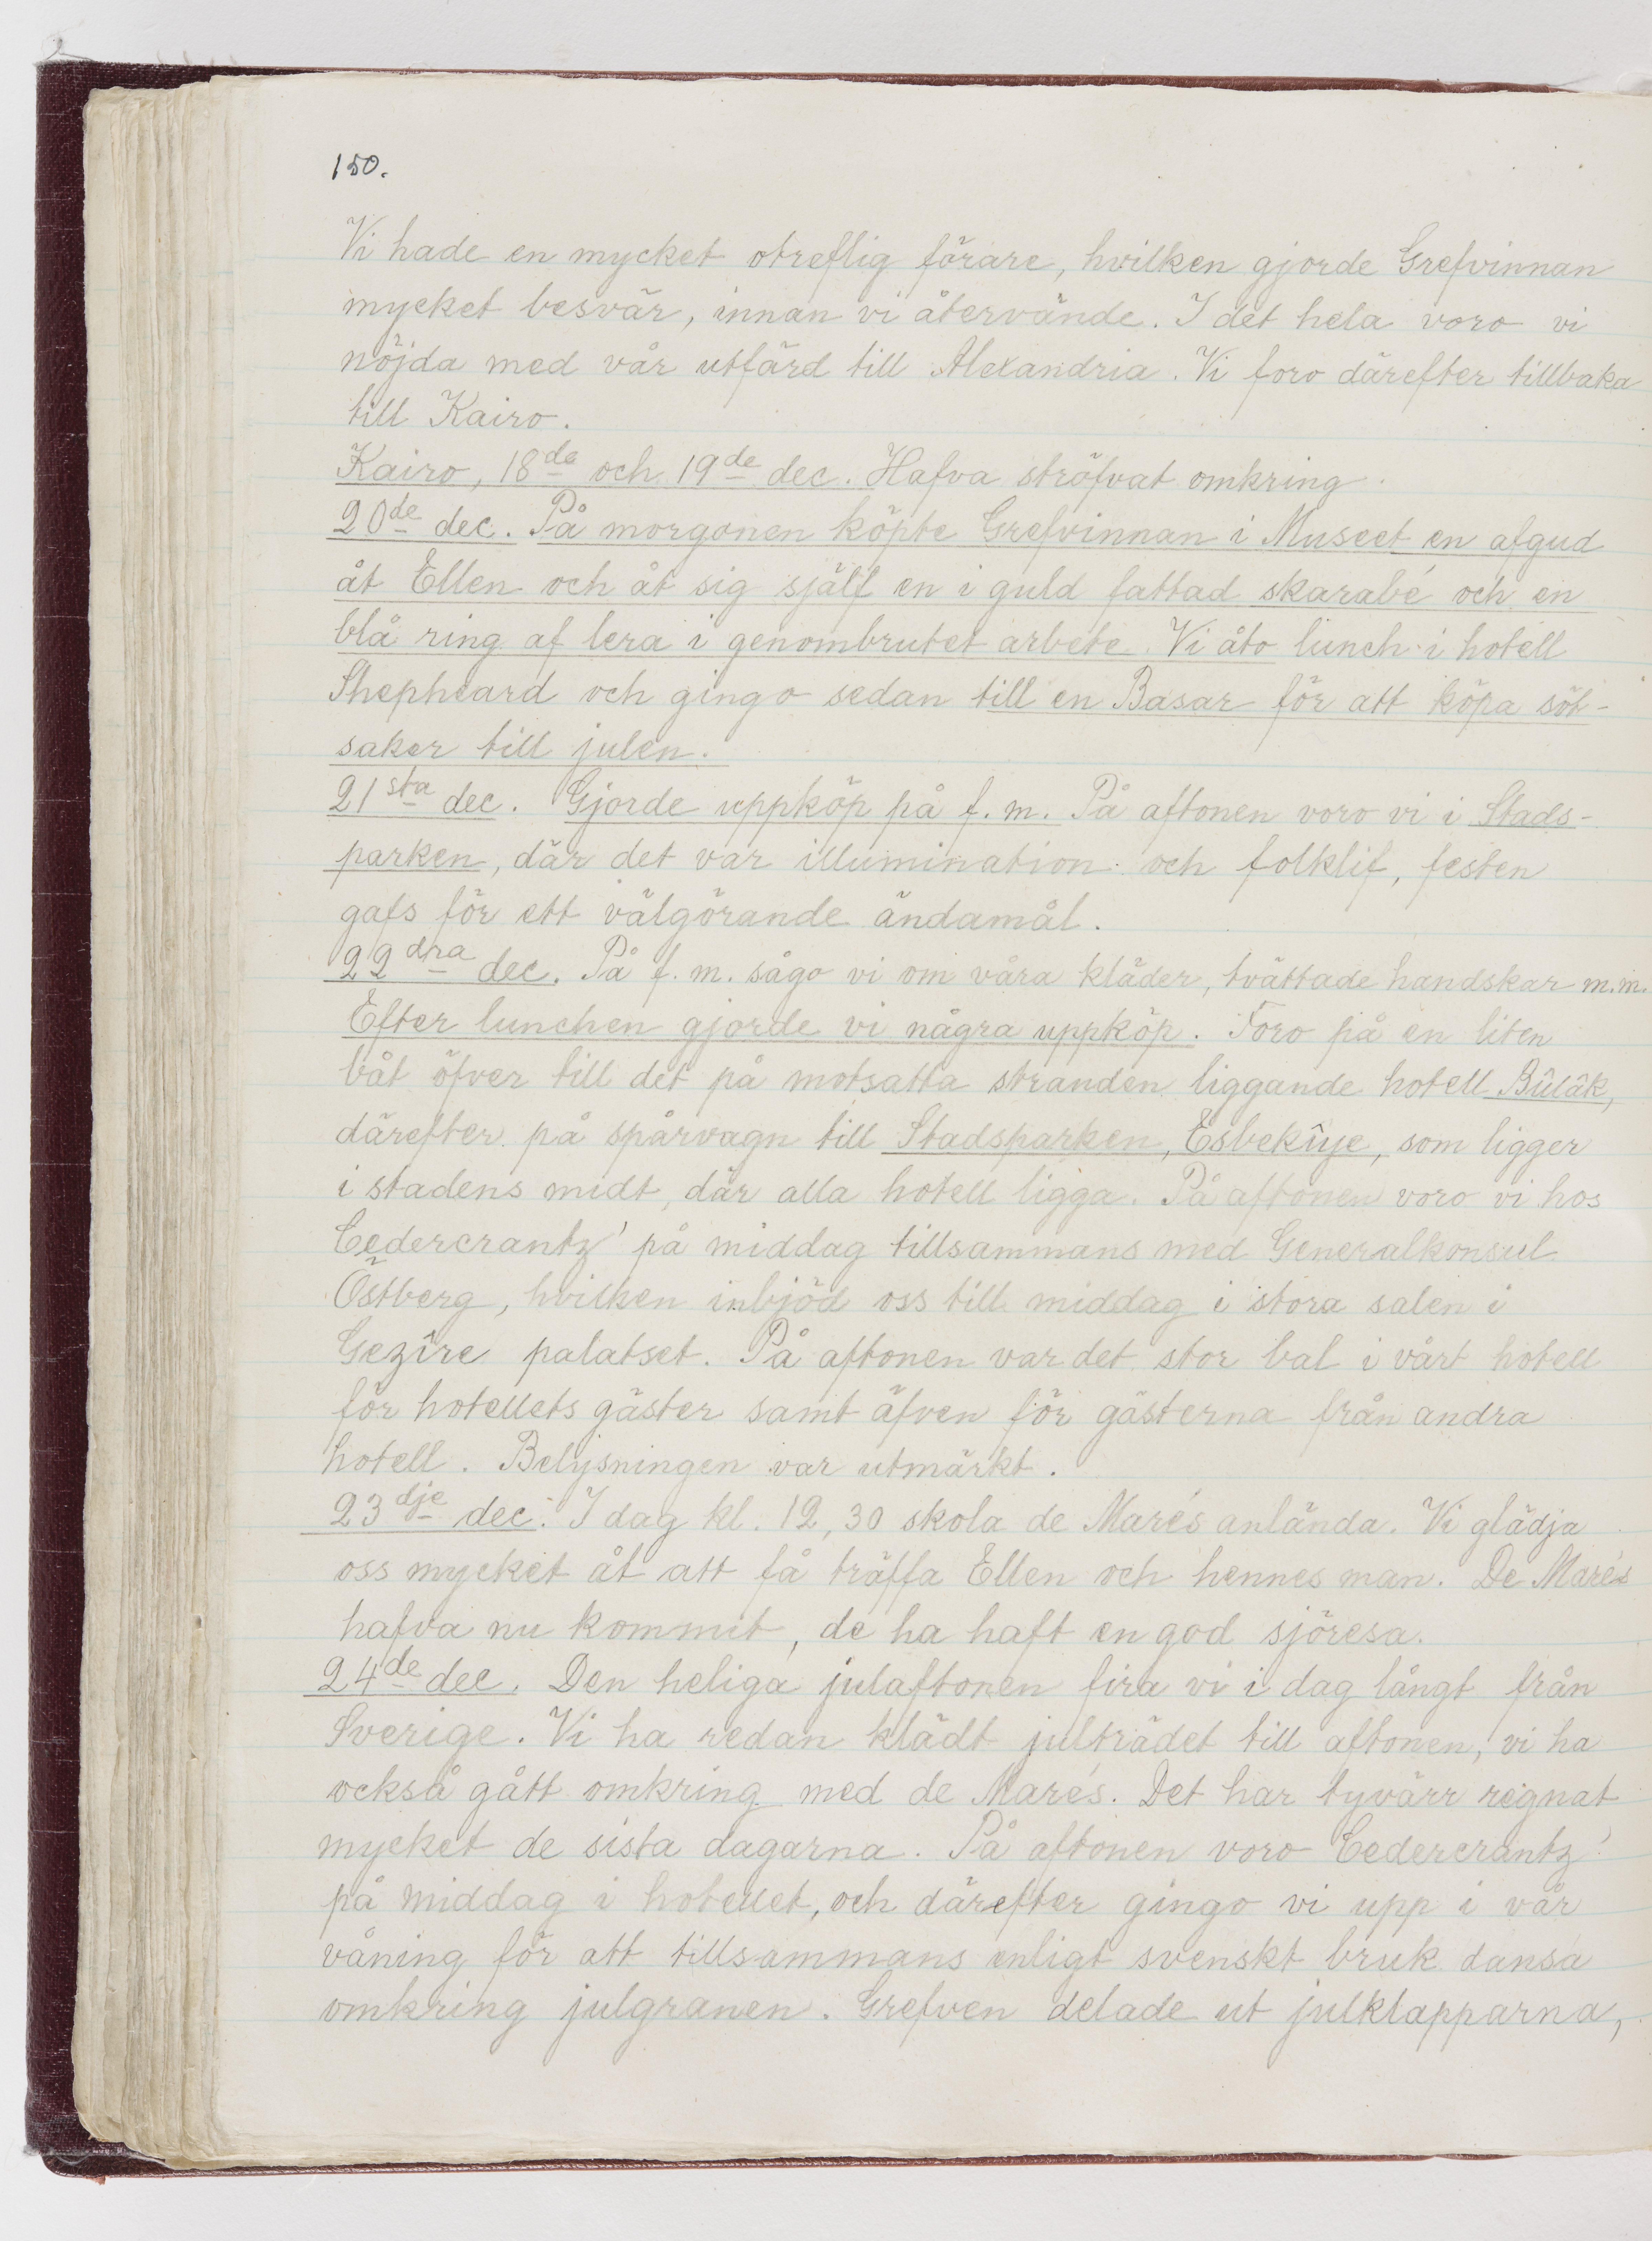 150.
Vi hade en mycket otreflig förare, hvilken gjorde Grefvinnan
mycket besvär, innan vi återvände. I det hela voro vi
nöjda med vår utfärd till Alexandria. Vi foro därefter tillbaka
till Kairo.
Kairo, 18de och 19de dec. Hafva ströfvat omkring.
20de dec. På morgonen köpte Grefvinnan i Museet en afgud
åt Ellen och åt sig själf en i guld fattad skarabé och en
blå ring af lera i genombrutet arbete. Vi åto lunch i hotell
Shepheard och gingo sedan till en Basar för att köpa söt-
saker till julen.
21sta dec. Gjorde uppköp på f. m. På aftonen voro vi i Stads-
parken, där det var illumination och folklif, festen
gafs för ett välgörande ändamål.
22dra dec. På f. m. sågo vi om våra kläder, tvättade handskar m.m.
Efter lunchen gjorde vi några uppköp. Foro på en liten
båt öfver till det på motsatta stranden liggande hotell Bûlâk,
därefter på spårvagn till Stadsparken, Esbekîye, som ligger
i stadens midt, där alla hotell ligga. På aftonen voro vi hos
Cedercrantz' på middag tillsammans med Generalkonsul
Östberg, hvilken inbjöd oss till middag i stora salen i
Gezîre palatset. På aftonen var det stor bal i vårt hotell
för hotellets gäster samt äfven för gästerna från andra
hotell. Belysningen var utmärkt.
23dje dec. I dag kl. 12,30 skola de Marés anlända. Vi glädja
oss mycket åt att få träffa Ellen och hennes man. De Marés
hafva nu kommit, de ha haft en god sjöresa.
24de dec. Den heliga julaftonen fira vi i dag långt från
Sverige. Vi ha redan klädt julträdet till aftonen, vi ha
också gått omkring med de Marés. Det har tyvärr regnat
mycket de sista dagarna. På aftonen voro Cedercrantz'
på middag i hotellet, och därefter gingo vi upp i vår
våning för att tillsammans enligt svenskt bruk dansa
omkring julgranen. Grefven delade ut julklapparna,